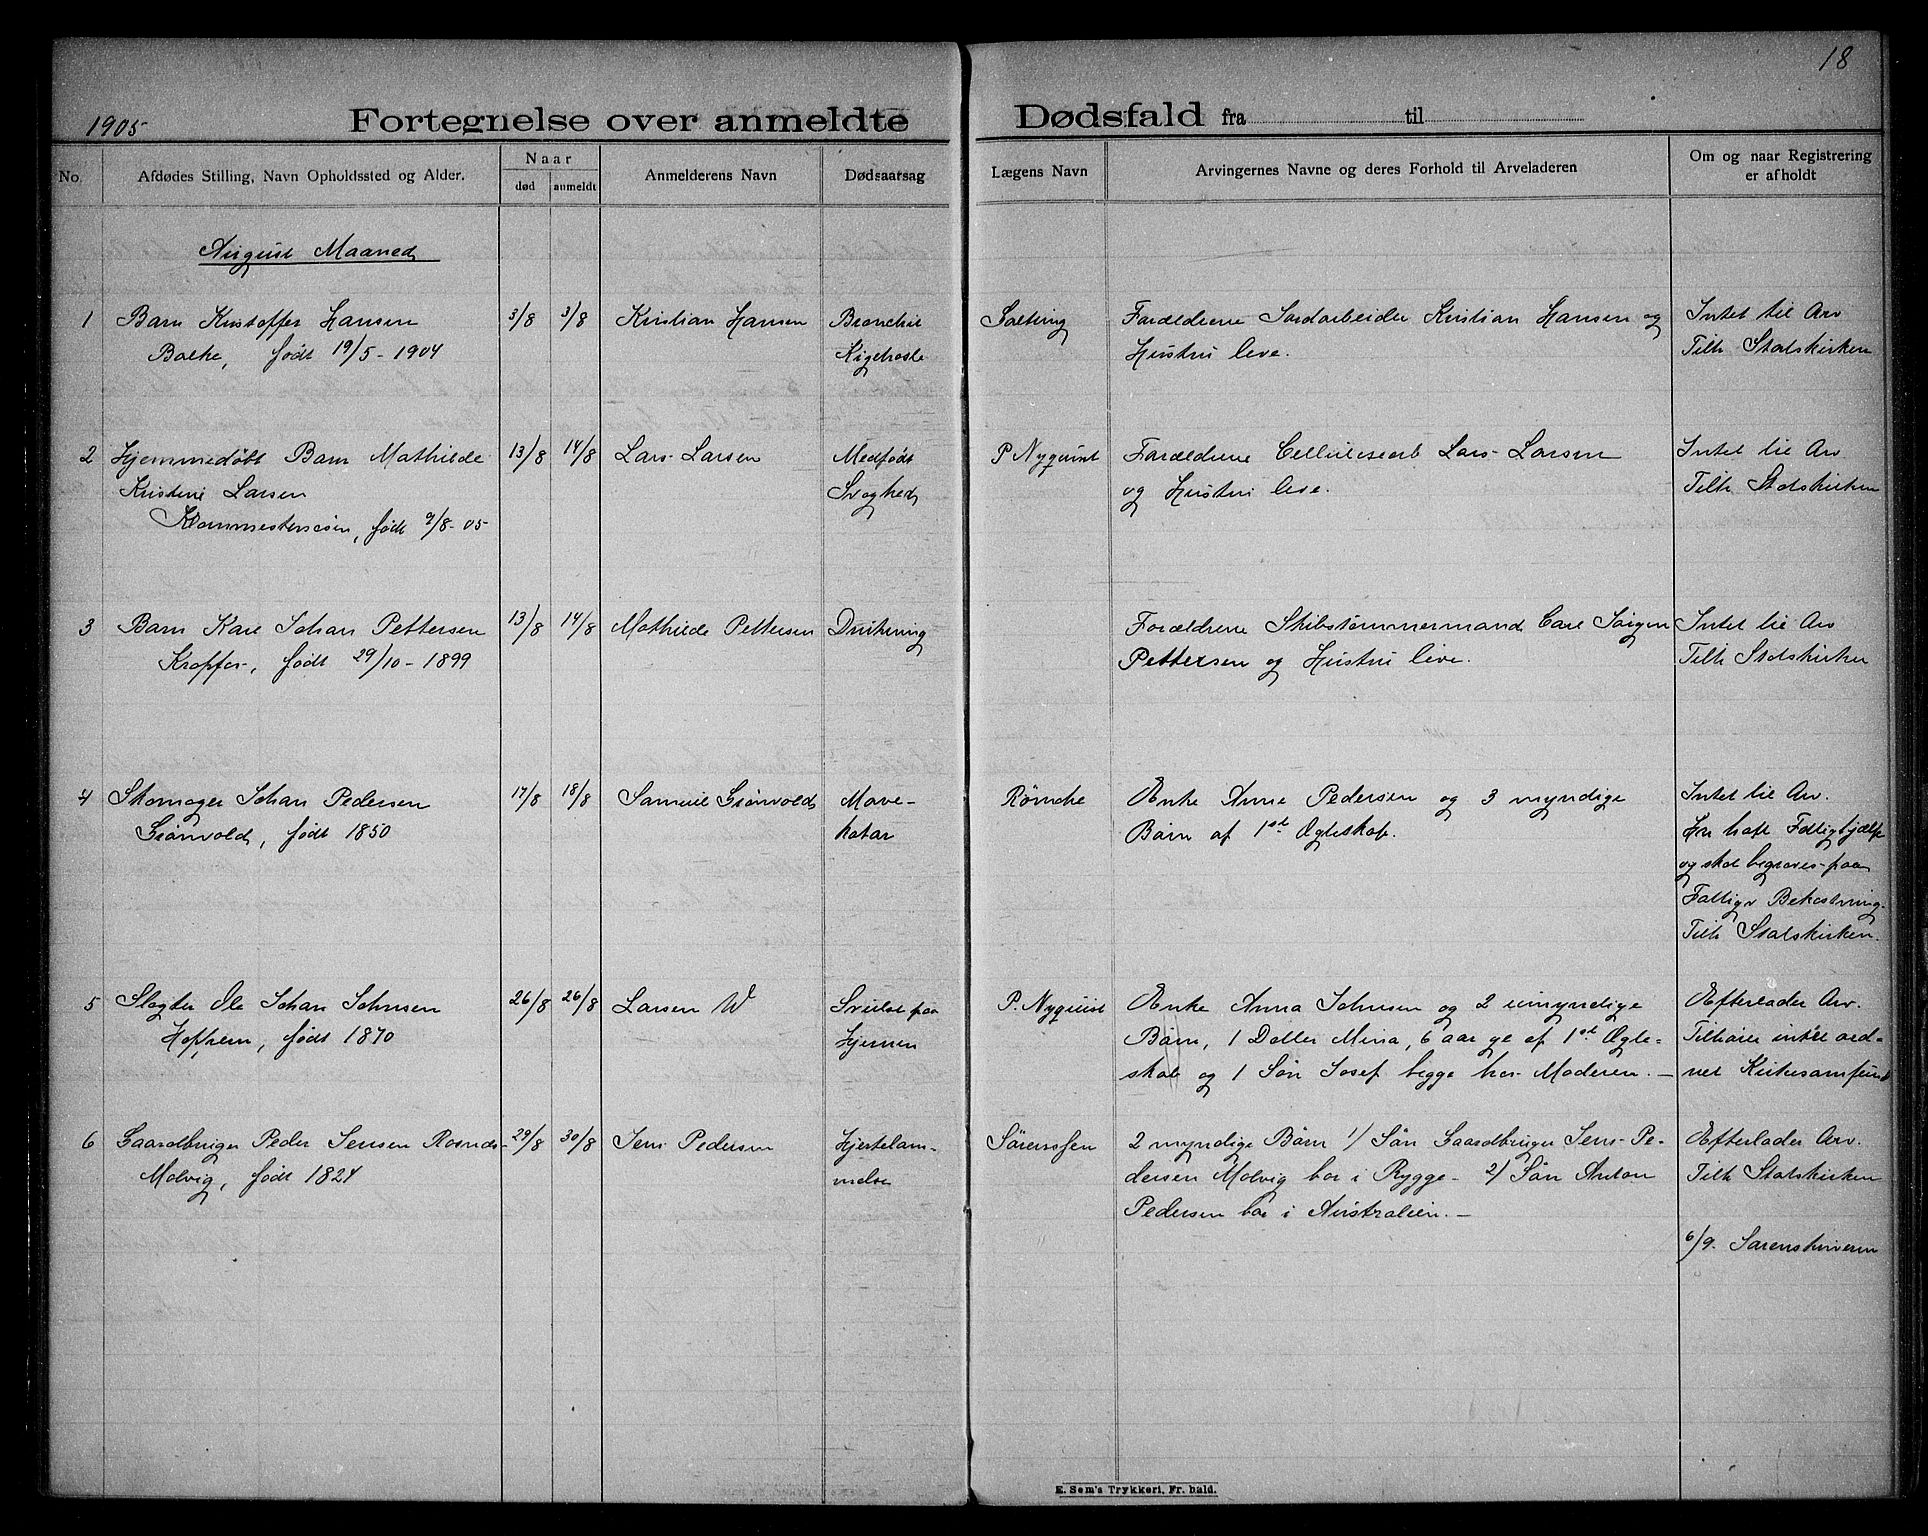 18
1905
Fortegnelse over anmeldte Dødsfald fra til
No.
Afdødes Stilling, Navn Opholdssted og Alder.
Naar
død
anmeldt
Anmelderens Navn
Dødsaarsag
Lægens Navn
Arvingernes Navne og deres Forhold til Arveladeren
Om og naar Registrering
er afholdt
August Maaned
1 Barn Kristoffer Hansen 3/8 3/8 Kristian Hansen Bronchit Forældrene Jordarbeider Kristian Hansen og Intet til Arv
Bakke, født 19/5-1904 Kigehoste Hustru leve. Tilh Statskirken
2 Hjemmedøbt Barn Mathilde 13/8 14/8 Lars Larsen Medfødt P Nyquist Forældrene Cellulosearb Lars Larsen Intet til Arv
Kristine Larsen Svaghed og Hustru leve. Tilh Statskirken
født 9/8-05
3 Barn Karl Johan Pettersen 13/8 14/8 Mathilde Pettersen Drukning Forældrene Skibstømmermand Carl Jørgen Intet til Arv
Krapfos, født 29/10-1899 Pettersen og Hustru leve. Tilh Statskirken
4 Skomager Johan Pedersen 17/8 18/8 Samuel Grønvold Mave- Rømcke Enke Anne Pedersen og 3 myndige Intet til Arv.
Grønvold, født 1850 katar Børn af 1st Ægteskab. Har havt Fattighjælp
og skal begraves paa
Fattigv Bekostning.
Tilh Statskirken.
5 Slagter Ole Johan Johnsen 26/8 26/8 Larsen W Svulst paa P. Nyquist Enke Anna Johnsen og 2 umyndige Efterlader Arv.
født 1870 Hjernen Børn, 1 Datter Mina, 6 aar g af 1st Ægte- Tilhører intet ord-
skab og 1 Søn Josef begge hos Moderen. — net Kirkesamfund
6 Gaardbruger Peder Jensen Rosnæs- 29/8 30/8 Jens Pedersen Hjertelam- Sørenssen 2 myndige Børn 1/ Søn Gaardbruger Jens Pe- Efterlader Arv.
Molvig, født 1824 melse dersen Molvig bor i Rygge- 2/ Søn Anton Tilh Statskirken
Pedersen bor i Australien. —
6/9. Sorenskriveren
E. Sem's Trykkeri, Fr.hald.